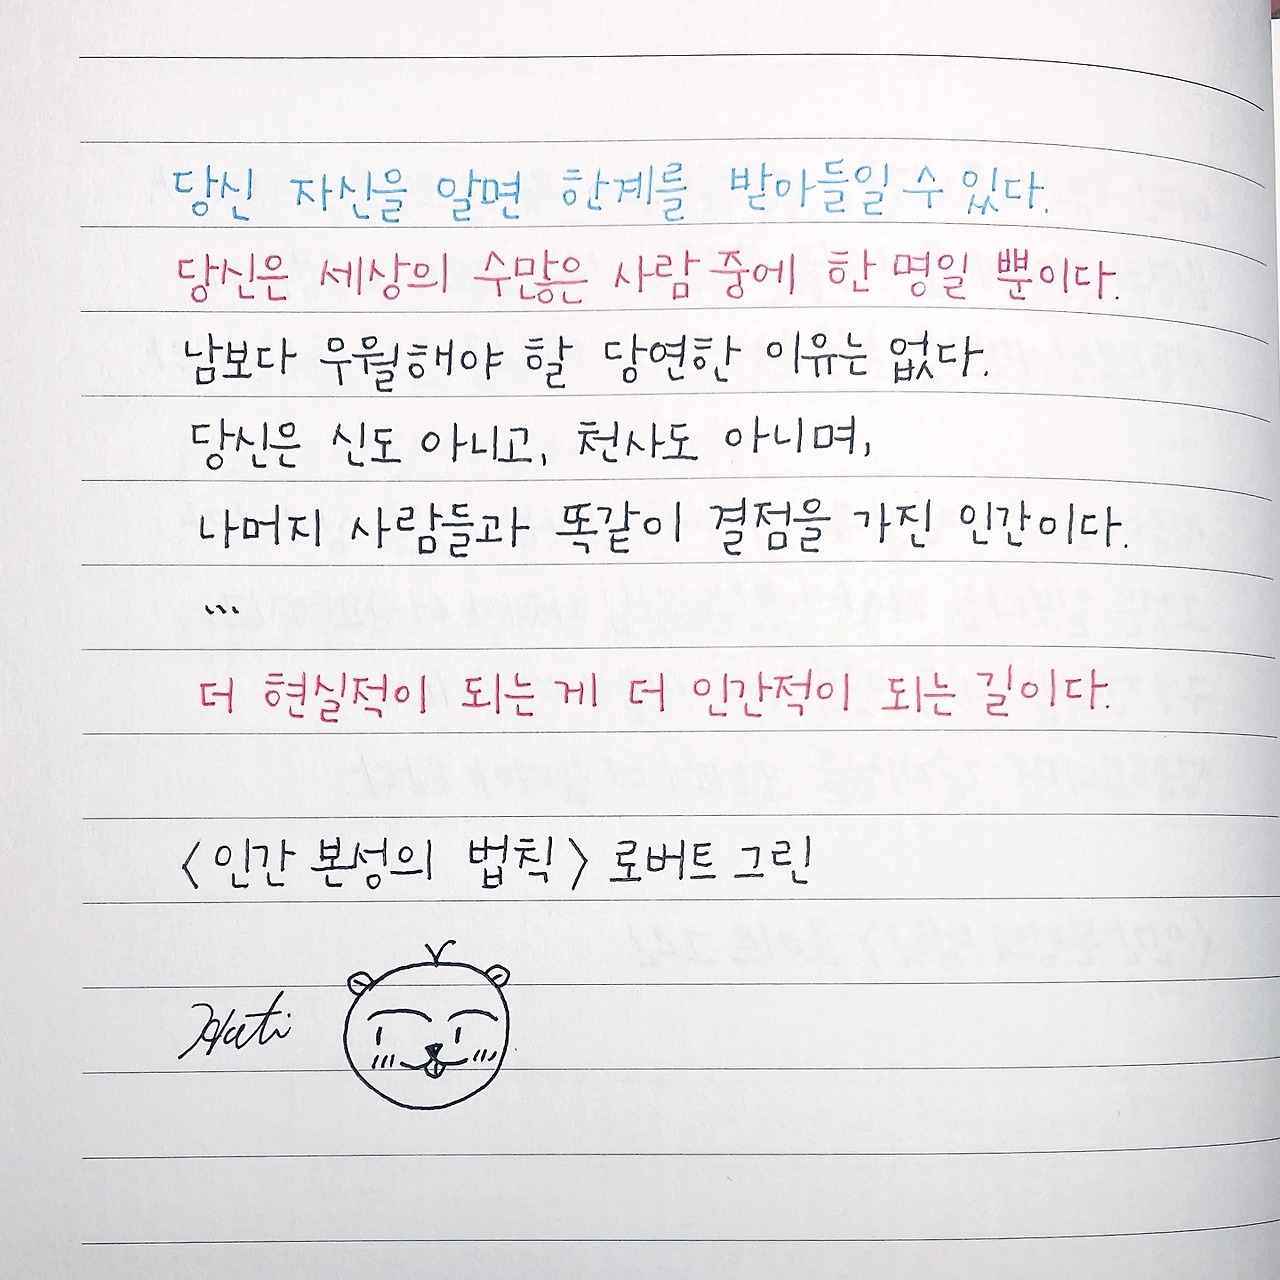 당신 자신을 알면 한계를 받아들일 수 있다.
당신은 세상의 수많은 사람 중에 한 명일 뿐이다.
남보다 우월해야 할 당연한 이유는 없다.
당신은 신도 아니고, 천사도 아니며,
나머지 사람들과 똑같이 결점을 가진 인간이다.
...
더 현실적이 되는 게 더 인간적이 되는 길이다.
<인간 본성의 법칙> 로버트 그린
Hati